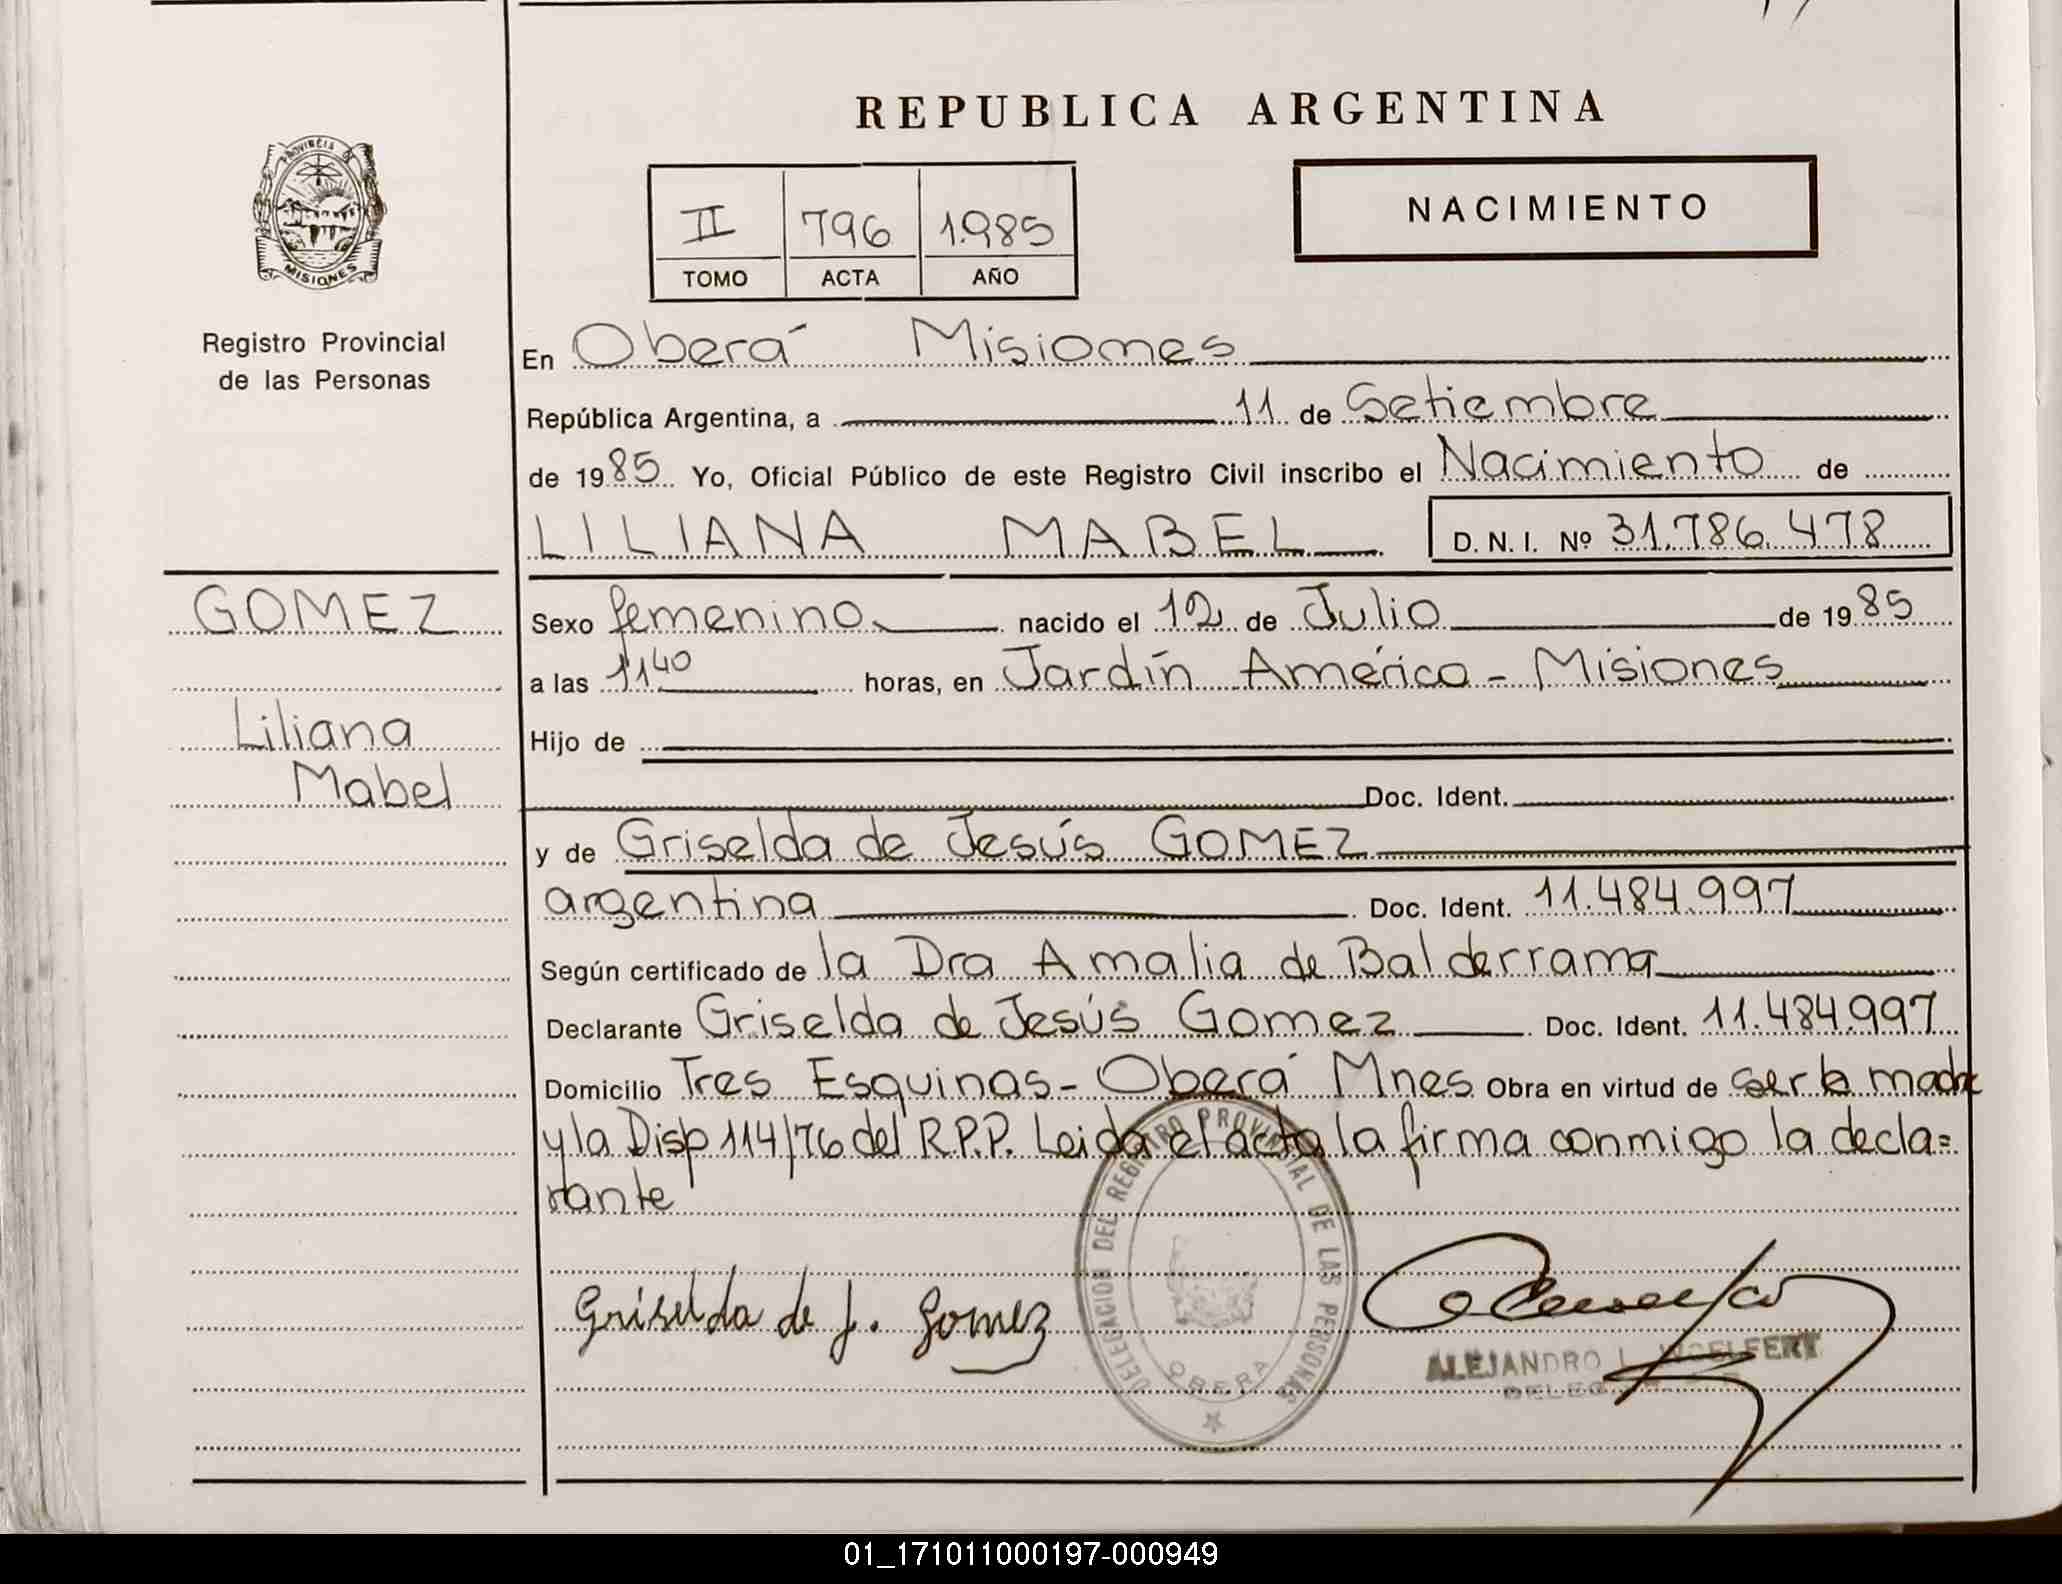 REPUBLICA ARGENTINA
PROVINCIA DE
MISIONES
II 796 1.985
TOMO ACTA AÑO
NACIMIENTO
Registro Provincial
de las Personas
En Oberá Misiones
República Argentina, a 11 de Setiembre
de 1985 Yo, Oficial Público de este Registro Civil inscribo el Nacimiento de
LILIANA MABEL D. N. I. Nº 31.786.478
GOMEZ
Liliana
Mabel
Sexo femenino nacido el 12 de Julio de 1985
a las 11 40 horas, en Jardín América - Misiones
Hijo de
Doc. Ident.
y de Griselda de Jesús GOMEZ
argentina Doc. Ident. 11.484.997
Según certificado de la Dra Amalia de Balderrama
Declarante Griselda de Jesús Gomez Doc. Ident. 11.484.997
Domicilio Tres Esquinas - Oberá Mnes Obra en virtud de ser la madre
y la Disp 114/76 del R.P.P. Leida el acta la firma conmigo la decla=
rante
DELEGACION DEL REGISTRO PROVINCIAL DE LAS PERSONAS
OBERA
Griselda de J. Gomez
ALEJANDRO L.
01_171011000197-000949